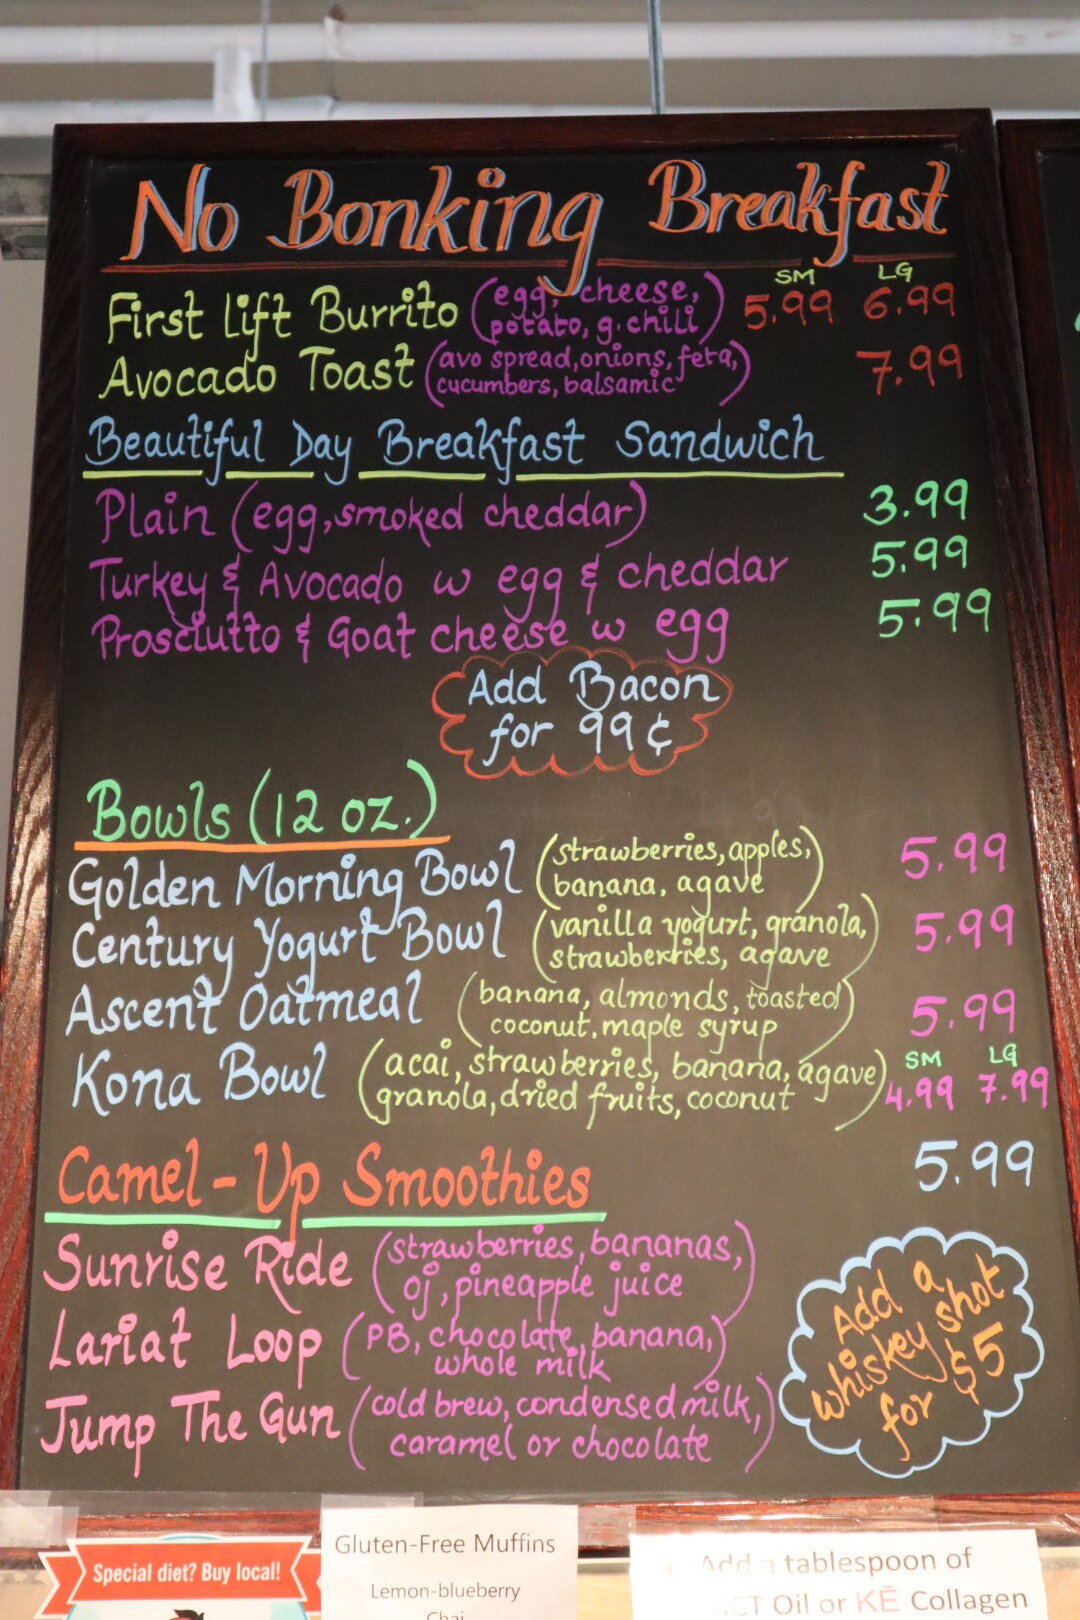 No Bonking Breakfast
SM LG
First Lift Burrito (egg, cheese, potato, g. chili) 5.99 6.99
Avocado Toast (avo spread, onions, feta, cucumbers, balsamic) 7.99
Beautiful Day Breakfast Sandwich
Plain (egg, smoked cheddar) 3.99
Turkey & Avocado w egg & cheddar 5.99
Prosciutto & Goat cheese w egg 5.99
Add Bacon
for 99¢
Bowls (12 oz.)
Golden Morning Bowl (strawberries, apples, banana, agave) 5.99
Century Yogurt Bowl (vanilla yogurt, granola, strawberries, agave 5.99
Ascent Oatmeal (banana, almonds, toasted coconut, maple syrup) 5.99
SM LG
Kona Bowl (acai, strawberries, banana, agave granola, dried fruits, coconut) 4.99 7.99
Camel-Up Smoothies 5.99
Sunrise Ride (strawberries, bananas, oj, pineapple juice)
Lariat Loop (PB, chocolate, banana, whole milk)
Jump The Gun (cold brew, condensed milk, caramel or chocolate)
Add a
whiskey shot
for $5
Special diet? Buy local!
Gluten-Free Muffins
Lemon-blueberry
Chai
Add a tablespoon of
Oil or KĒ Collagen